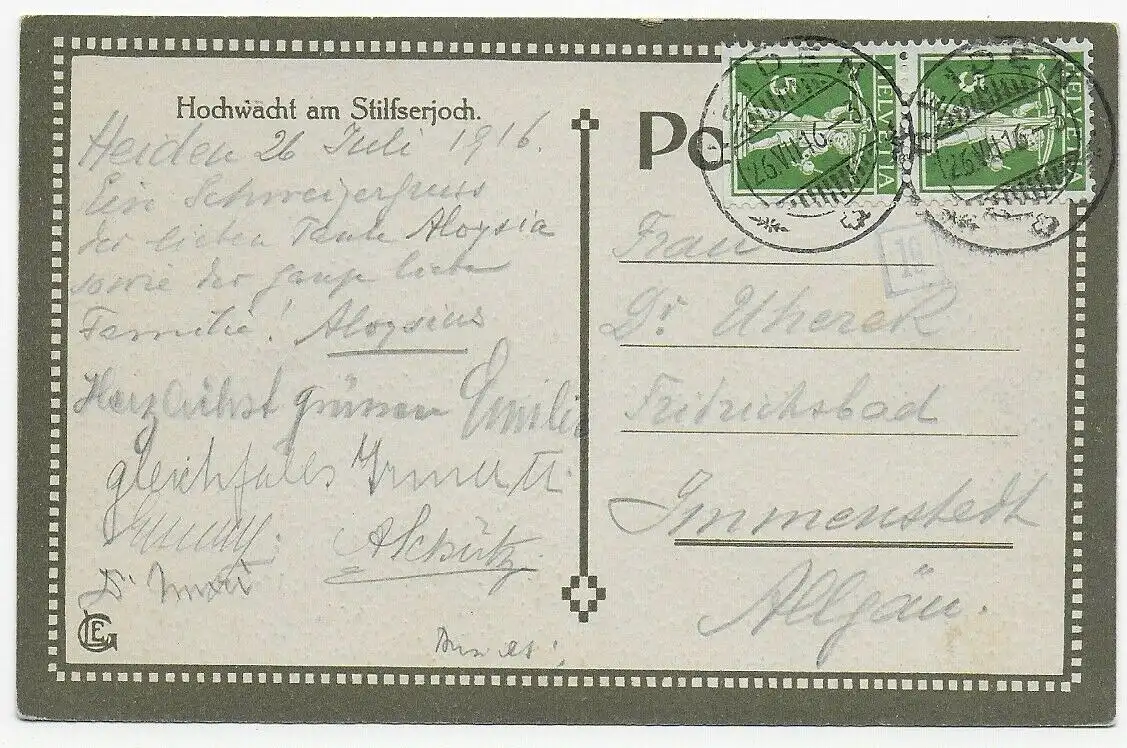 Hochwacht am Stilfserjoch.
Heiden 26 Juli 1916.
Ein Schweizergruss
der lieben Tante Aloysia
sowie der ganze liebe
Familie! Aloysius
Herzlichst grüssen Emilie
gleichfalls
ASchütz.
Dr
GLE
Po
HELVETIA
HELVETIA
HEIDEN
26.VII.16.-3
HEIDEN
26.VII.16.-3
Frau
10
Dr. Uherek
Fridrichsbad
Immenstedt
Allgäu.